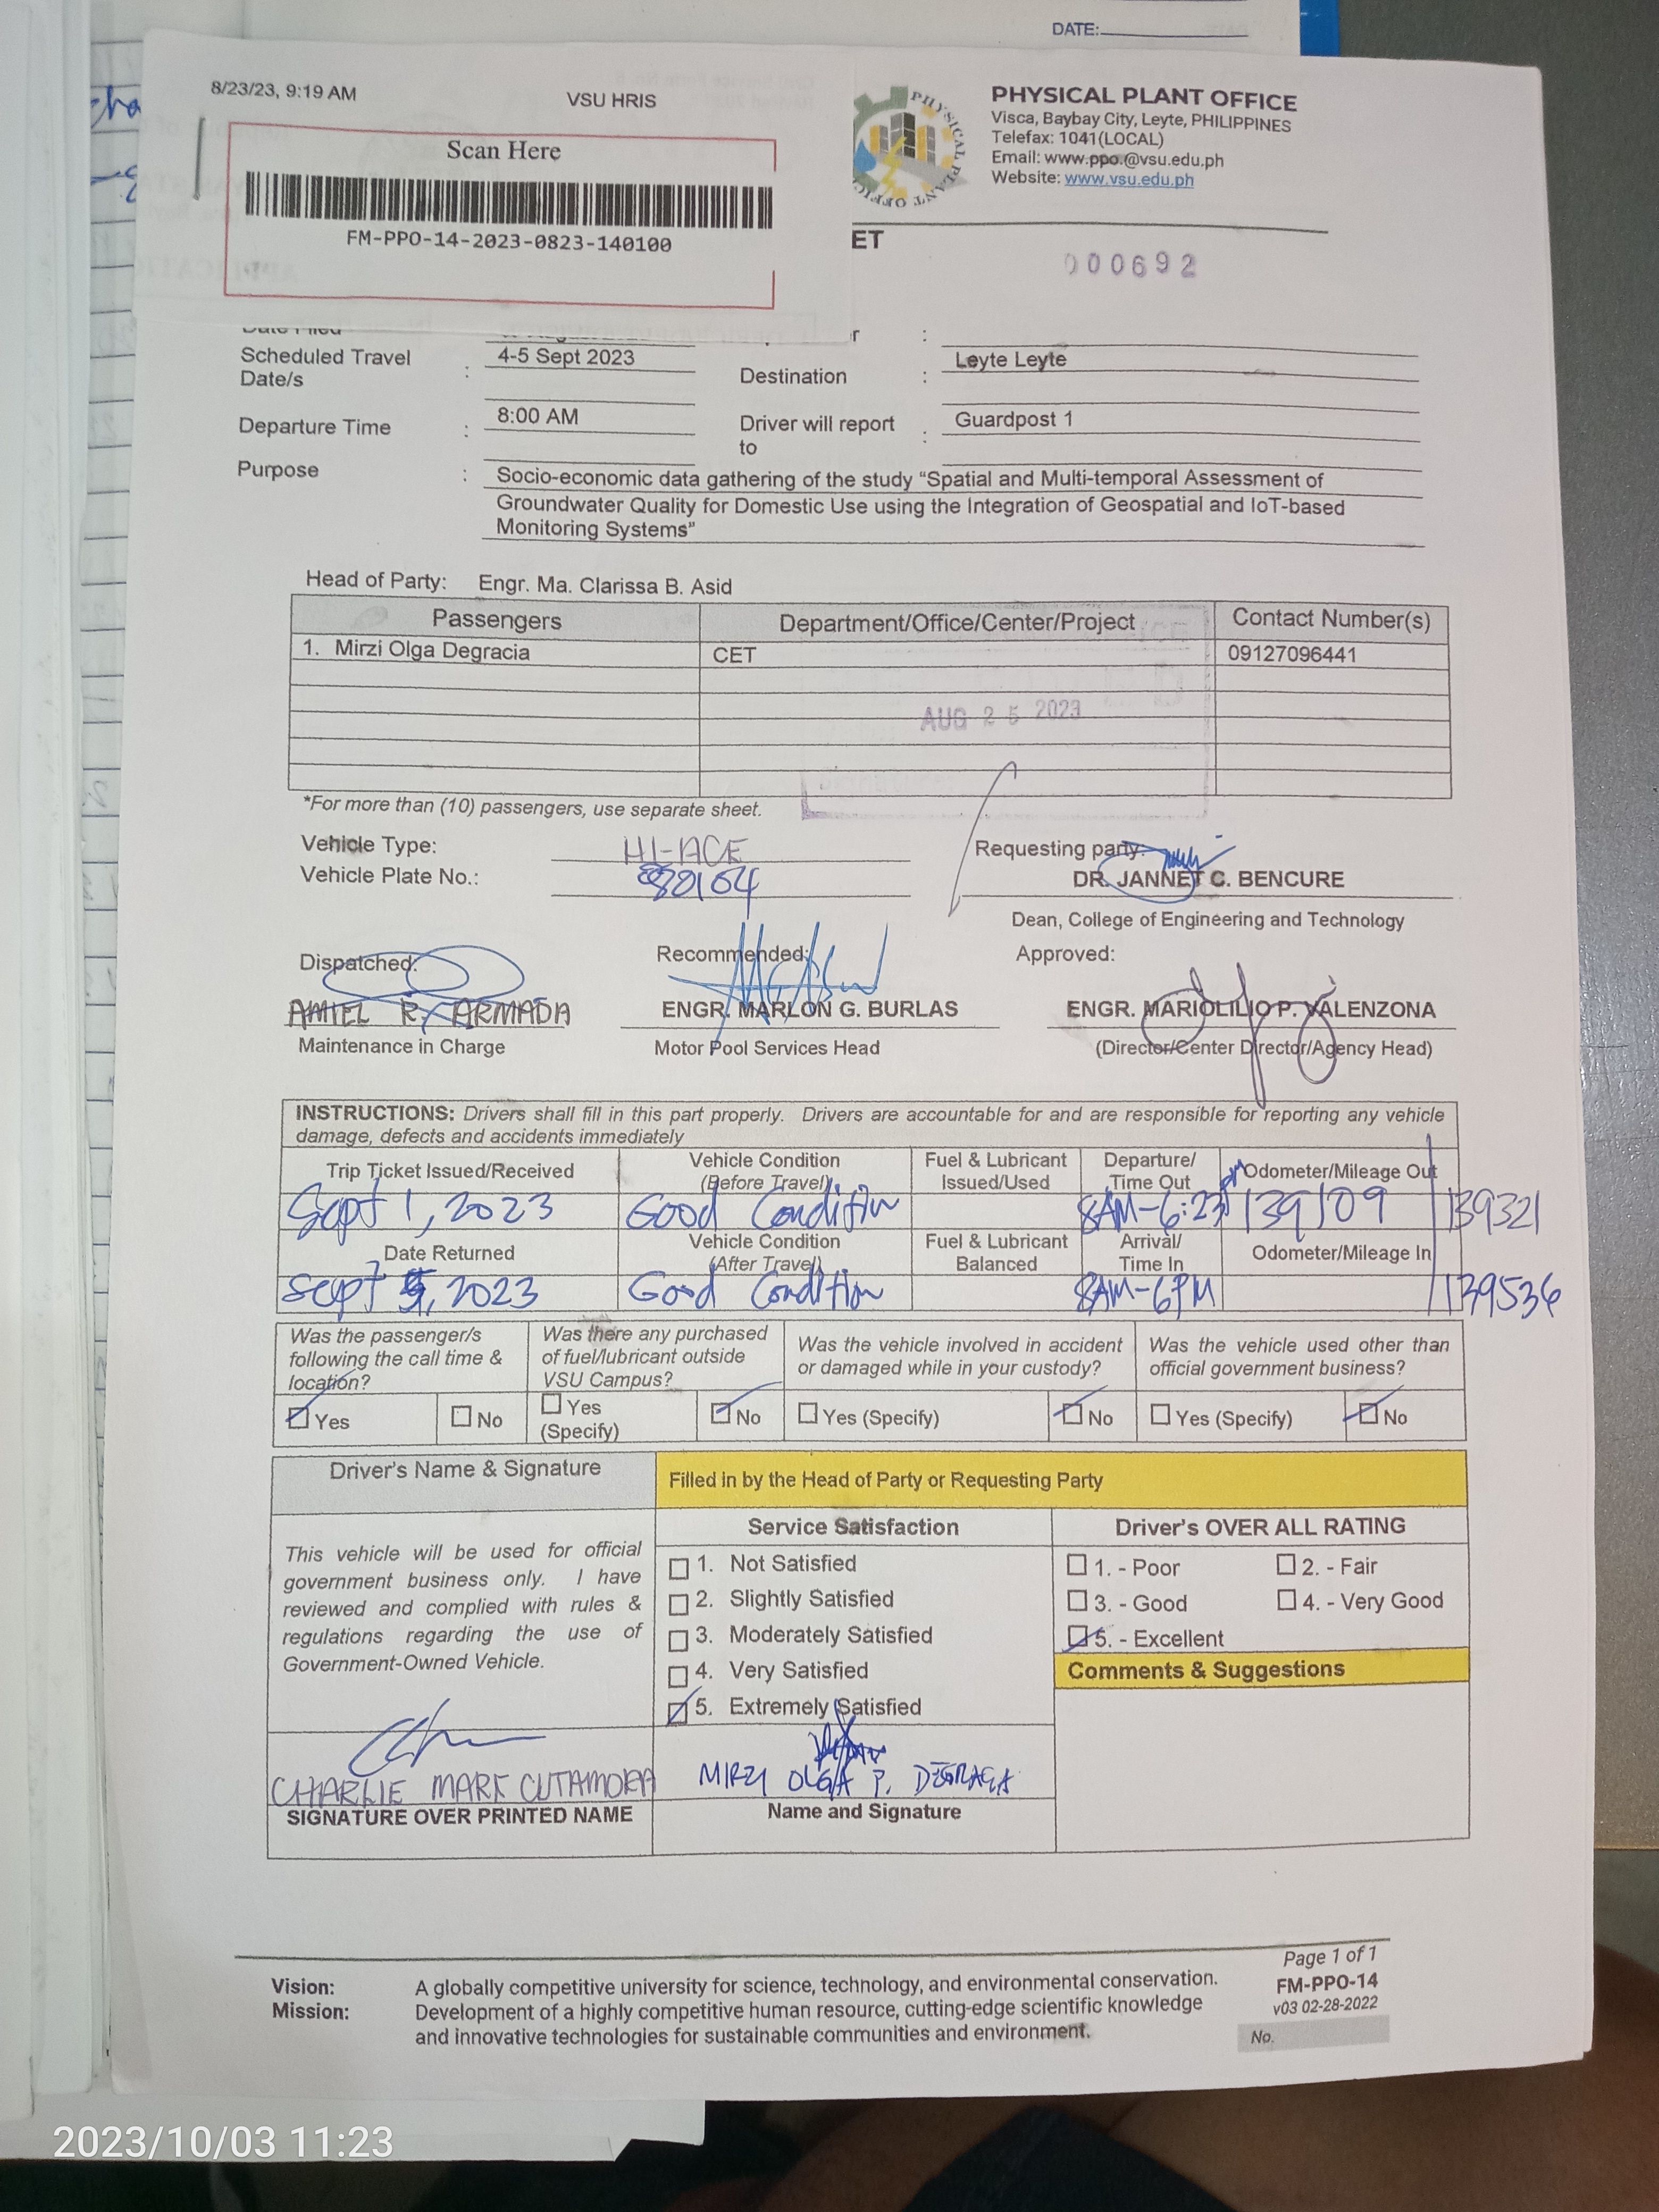 DATE:
8/23/23, 9:19 AM
VSU HRIS
Scan Here
FM-PPO-14-2023-0823-140100
PHYSICAL PLANT OFFICE
Visca, Baybay City, Leyte, PHILIPPINES
Telefax: 1041(LOCAL)
Email: www.ppo.@vsu.edu.ph
Website: www.vsu.edu.ph
ET
000692
Date Filed
Scheduled Travel Date/s : 4-5 Sept 2023
Destination : Leyte Leyte
Departure Time : 8:00 AM
Driver will report to : Guardpost 1
Purpose : Socio-economic data gathering of the study “Spatial and Multi-temporal Assessment of
Groundwater Quality for Domestic Use using the Integration of Geospatial and IoT-based
Monitoring Systems”
Head of Party: Engr. Ma. Clarissa B. Asid
Passengers Department/Office/Center/Project Contact Number(s)
1. Mirzi Olga Degracia CET 09127096441
AUG 25 2023
*For more than (10) passengers, use separate sheet.
Vehicle Type: HI-ACE
Vehicle Plate No.:
Requesting party:
DR. JANNET C. BENCURE
Dean, College of Engineering and Technology
Dispatched: Recommended: Approved:
AMIEL R. ARMADA ENGR. MARLON G. BURLAS ENGR. MARIOLILIO P. VALENZONA
Maintenance in Charge Motor Pool Services Head (Director/Center Director/Agency Head)
INSTRUCTIONS: Drivers shall fill in this part properly. Drivers are accountable for and are responsible for reporting any vehicle
damage, defects and accidents immediately
Trip Ticket Issued/Received Vehicle Condition (Before Travel) Fuel & Lubricant Issued/Used Departure/ Time Out Odometer/Mileage Out
Sept 1, 2023 Good Condition 8AM-6:23 139109 139321
Date Returned Vehicle Condition (After Travel) Fuel & Lubricant Balanced Arrival/ Time In Odometer/Mileage In
Sept 5, 2023 Good Condition 8AM-6PM 139536
Was the passenger/s following the call time & location?
Was there any purchased of fuel/lubricant outside VSU Campus?
Was the vehicle involved in accident or damaged while in your custody?
Was the vehicle used other than official government business?
Yes No Yes (Specify) No Yes (Specify) No Yes (Specify) No
Driver's Name & Signature
Filled in by the Head of Party or Requesting Party
This vehicle will be used for official
government business only. I have
reviewed and complied with rules &
regulations regarding the use of
Government-Owned Vehicle.
Service Satisfaction
1. Not Satisfied
2. Slightly Satisfied
3. Moderately Satisfied
4. Very Satisfied
5. Extremely Satisfied
Driver's OVER ALL RATING
1. - Poor 2. - Fair
3. - Good 4. - Very Good
5. - Excellent
Comments & Suggestions
CHARLIE MARK CUTAMORA
SIGNATURE OVER PRINTED NAME
MIRZI OLGA P. DEGRACIA
Name and Signature
Vision: A globally competitive university for science, technology, and environmental conservation.
Mission: Development of a highly competitive human resource, cutting-edge scientific knowledge
and innovative technologies for sustainable communities and environment.
Page 1 of 1
FM-PPO-14
v03 02-28-2022
No.
2023/10/03 11:23